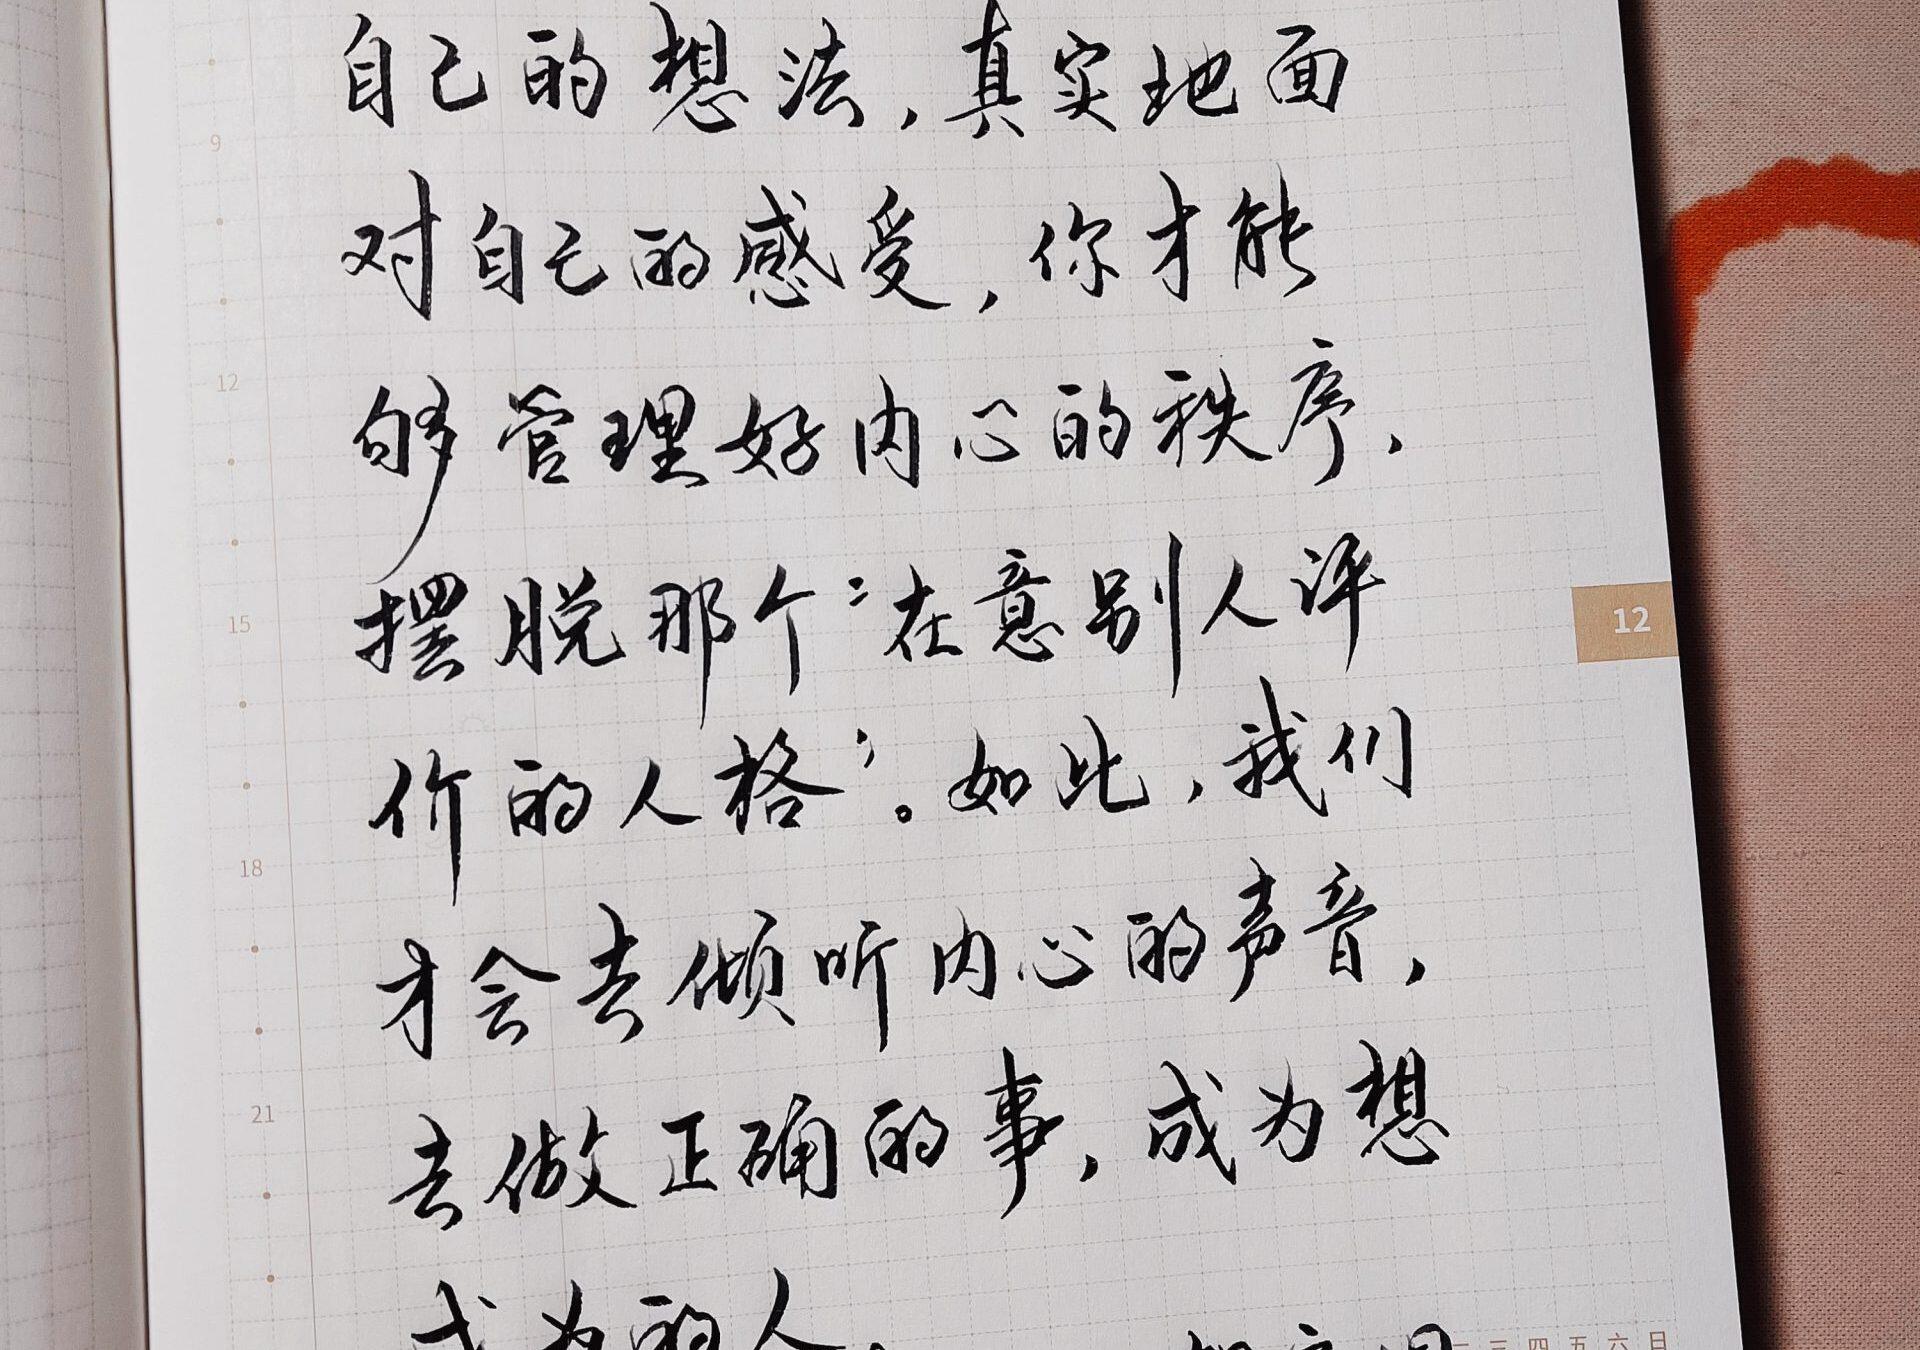 自己的想法,真实地面
9
对自己的感受,你才能
12
够管理好内心的秩序,
摆脱那个“在意别人评
15
12
价的人格”。如此,我们
18
才会去倾听内心的声音,
21
去做正确的事,成为想
成为的人。
二三四五六日